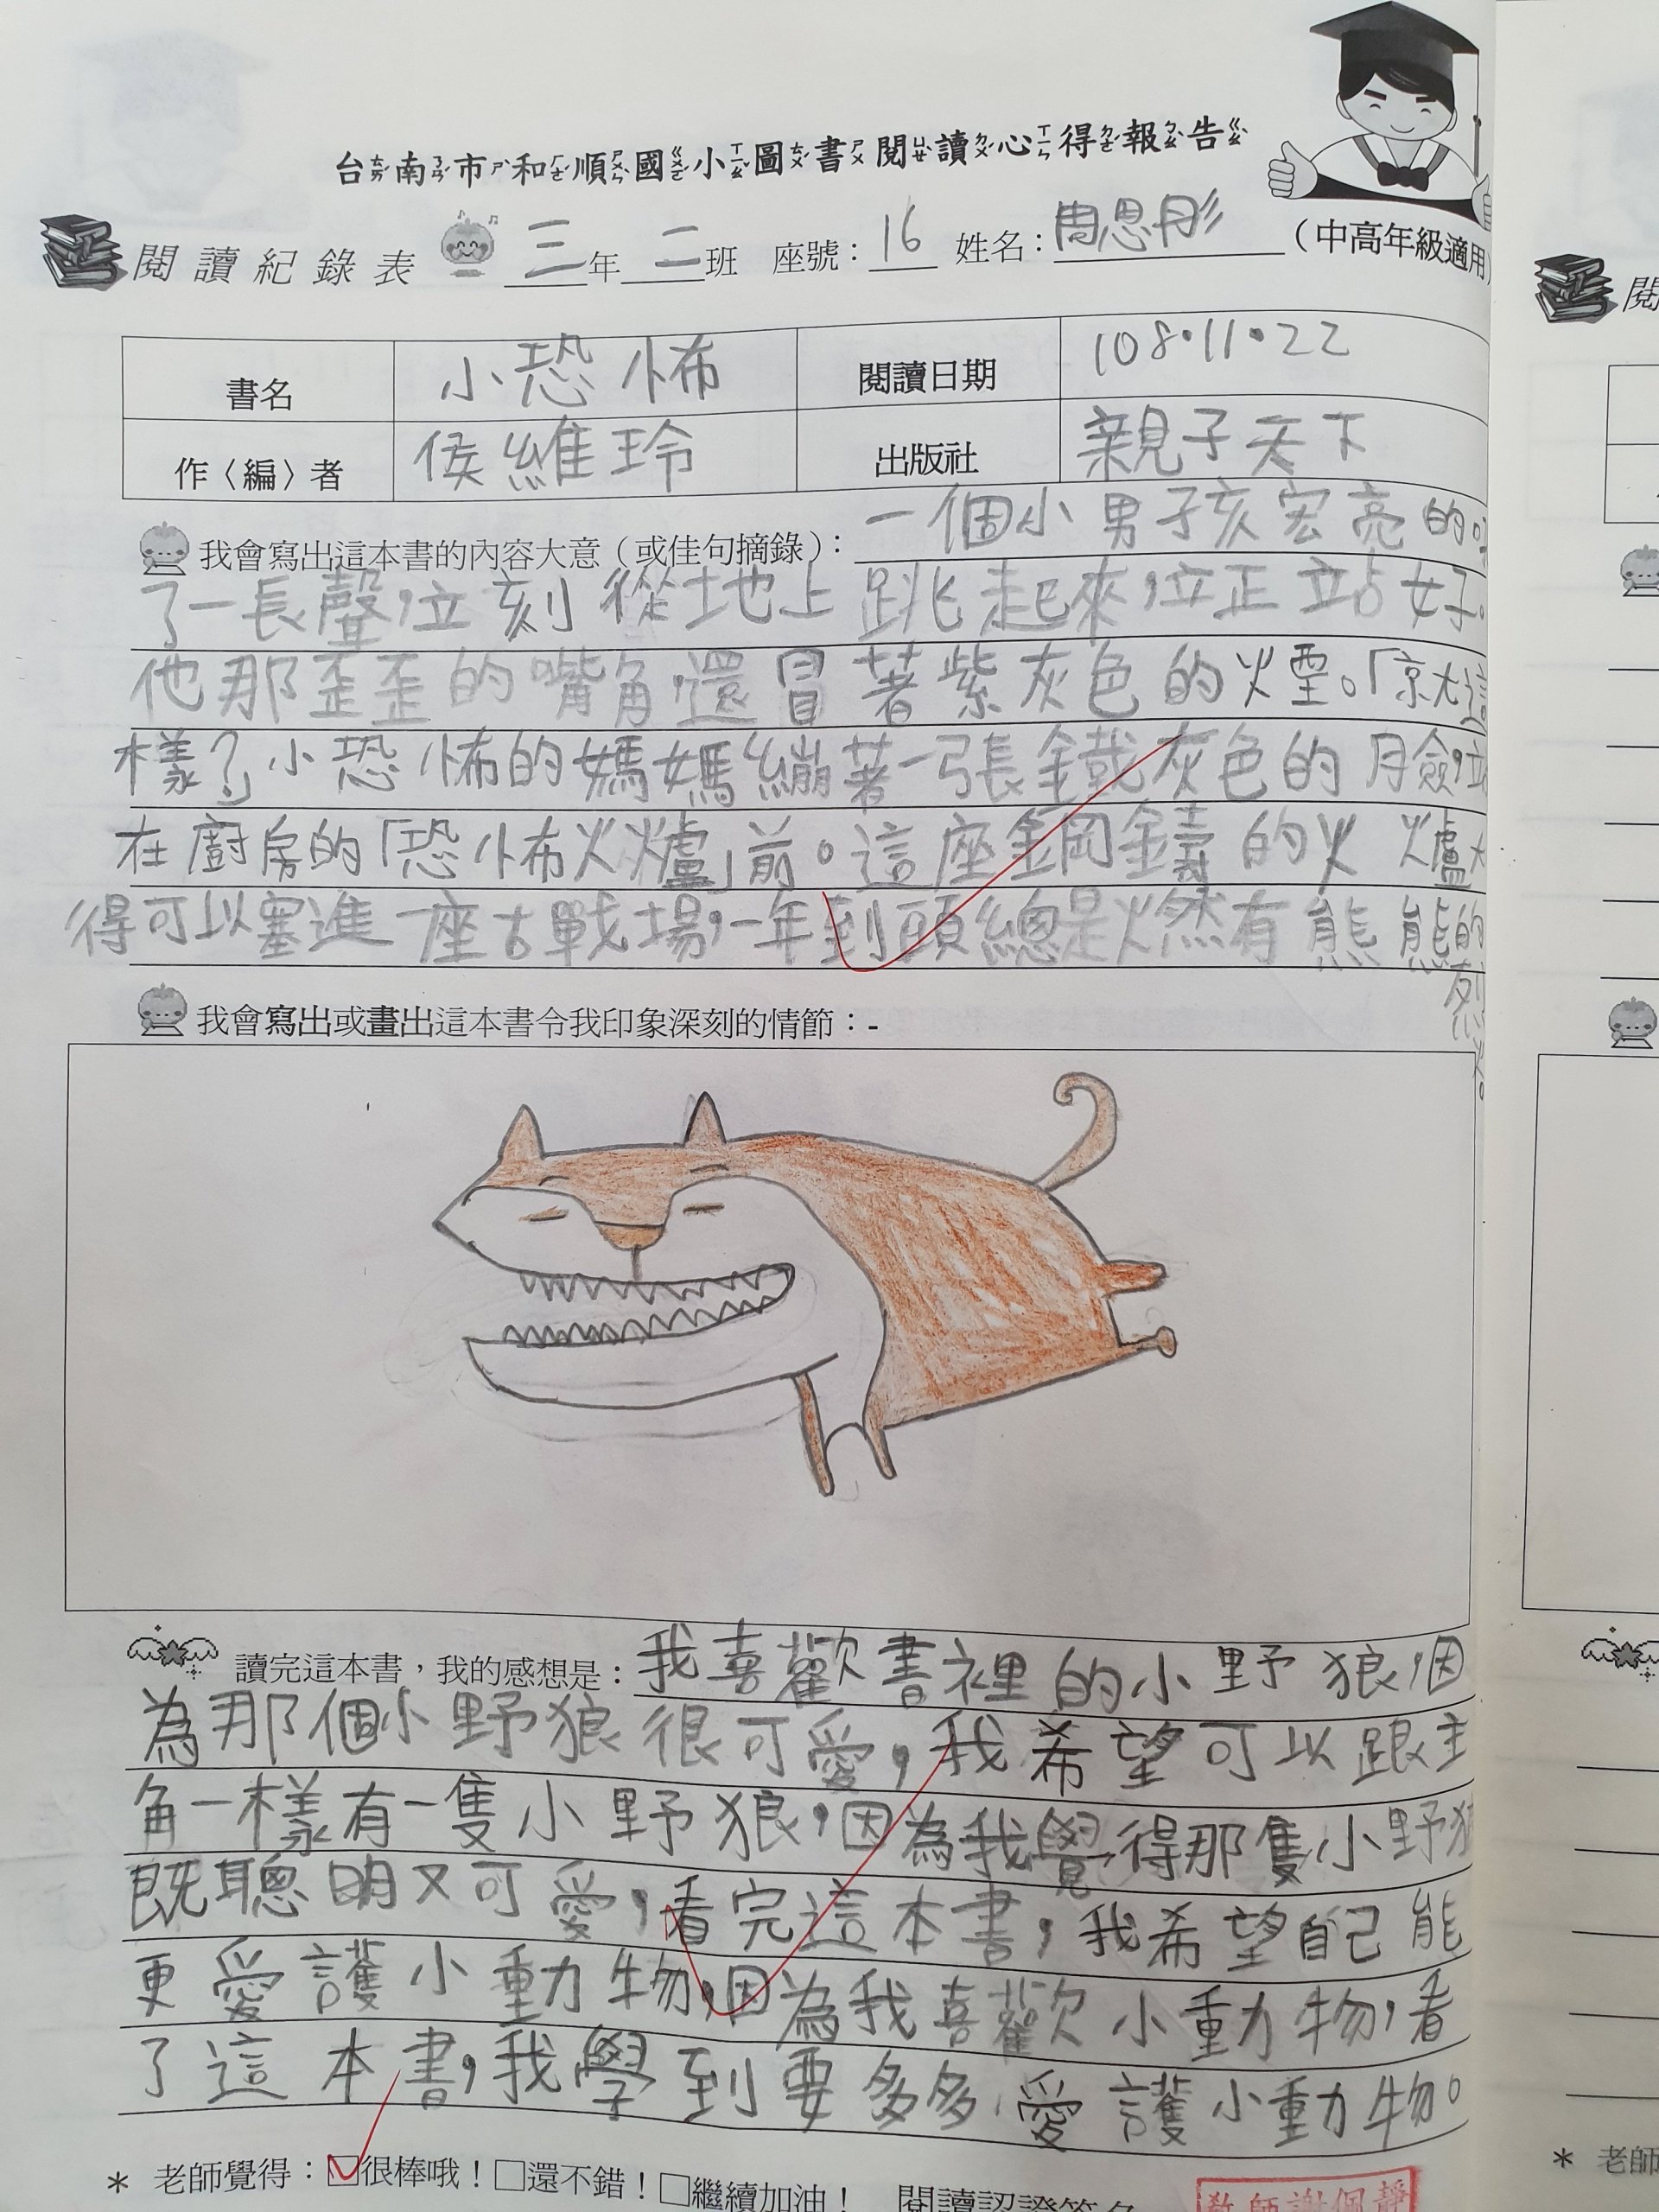 台南市和順國小圖書閱讀心得報告
閱讀紀錄表 三年二班 座號：16 姓名：周恩彤（中高年級適用）
書名 小恐怖 閱讀日期 108.11.22
作〈編〉者 侯維玲 出版社 親子天下
我會寫出這本書的內容大意（或佳句摘錄）：一個小男孩宏亮的
了一長聲，立刻從地上跳起來，立正站好。
他那歪歪的嘴角，還冒著紫灰色的火煙。「就這
樣？」小恐怖的媽媽繃著一張鐵灰色的臉，站
在廚房的「恐怖火爐」前。這座鋼鑄的火爐大
得可以塞進一座古戰場，一年到頭總是燃有熊熊的
烈火。
我會寫出或畫出這本書令我印象深刻的情節：-
讀完這本書，我的感想是：我喜歡書裡的小野狼，因
為那個小野狼很可愛，我希望可以跟主
角一樣有一隻小野狼，因為我覺得那隻小野狼
既聰明又可愛，看完這本書，我希望自己能
更愛護小動物，因為我喜歡小動物，看
了這本書，我學到要多多愛護小動物。
* 老師覺得：☑很棒哦！□還不錯！□繼續加油！ 閱讀認證簽名
教師謝佩靜
閱
* 老師